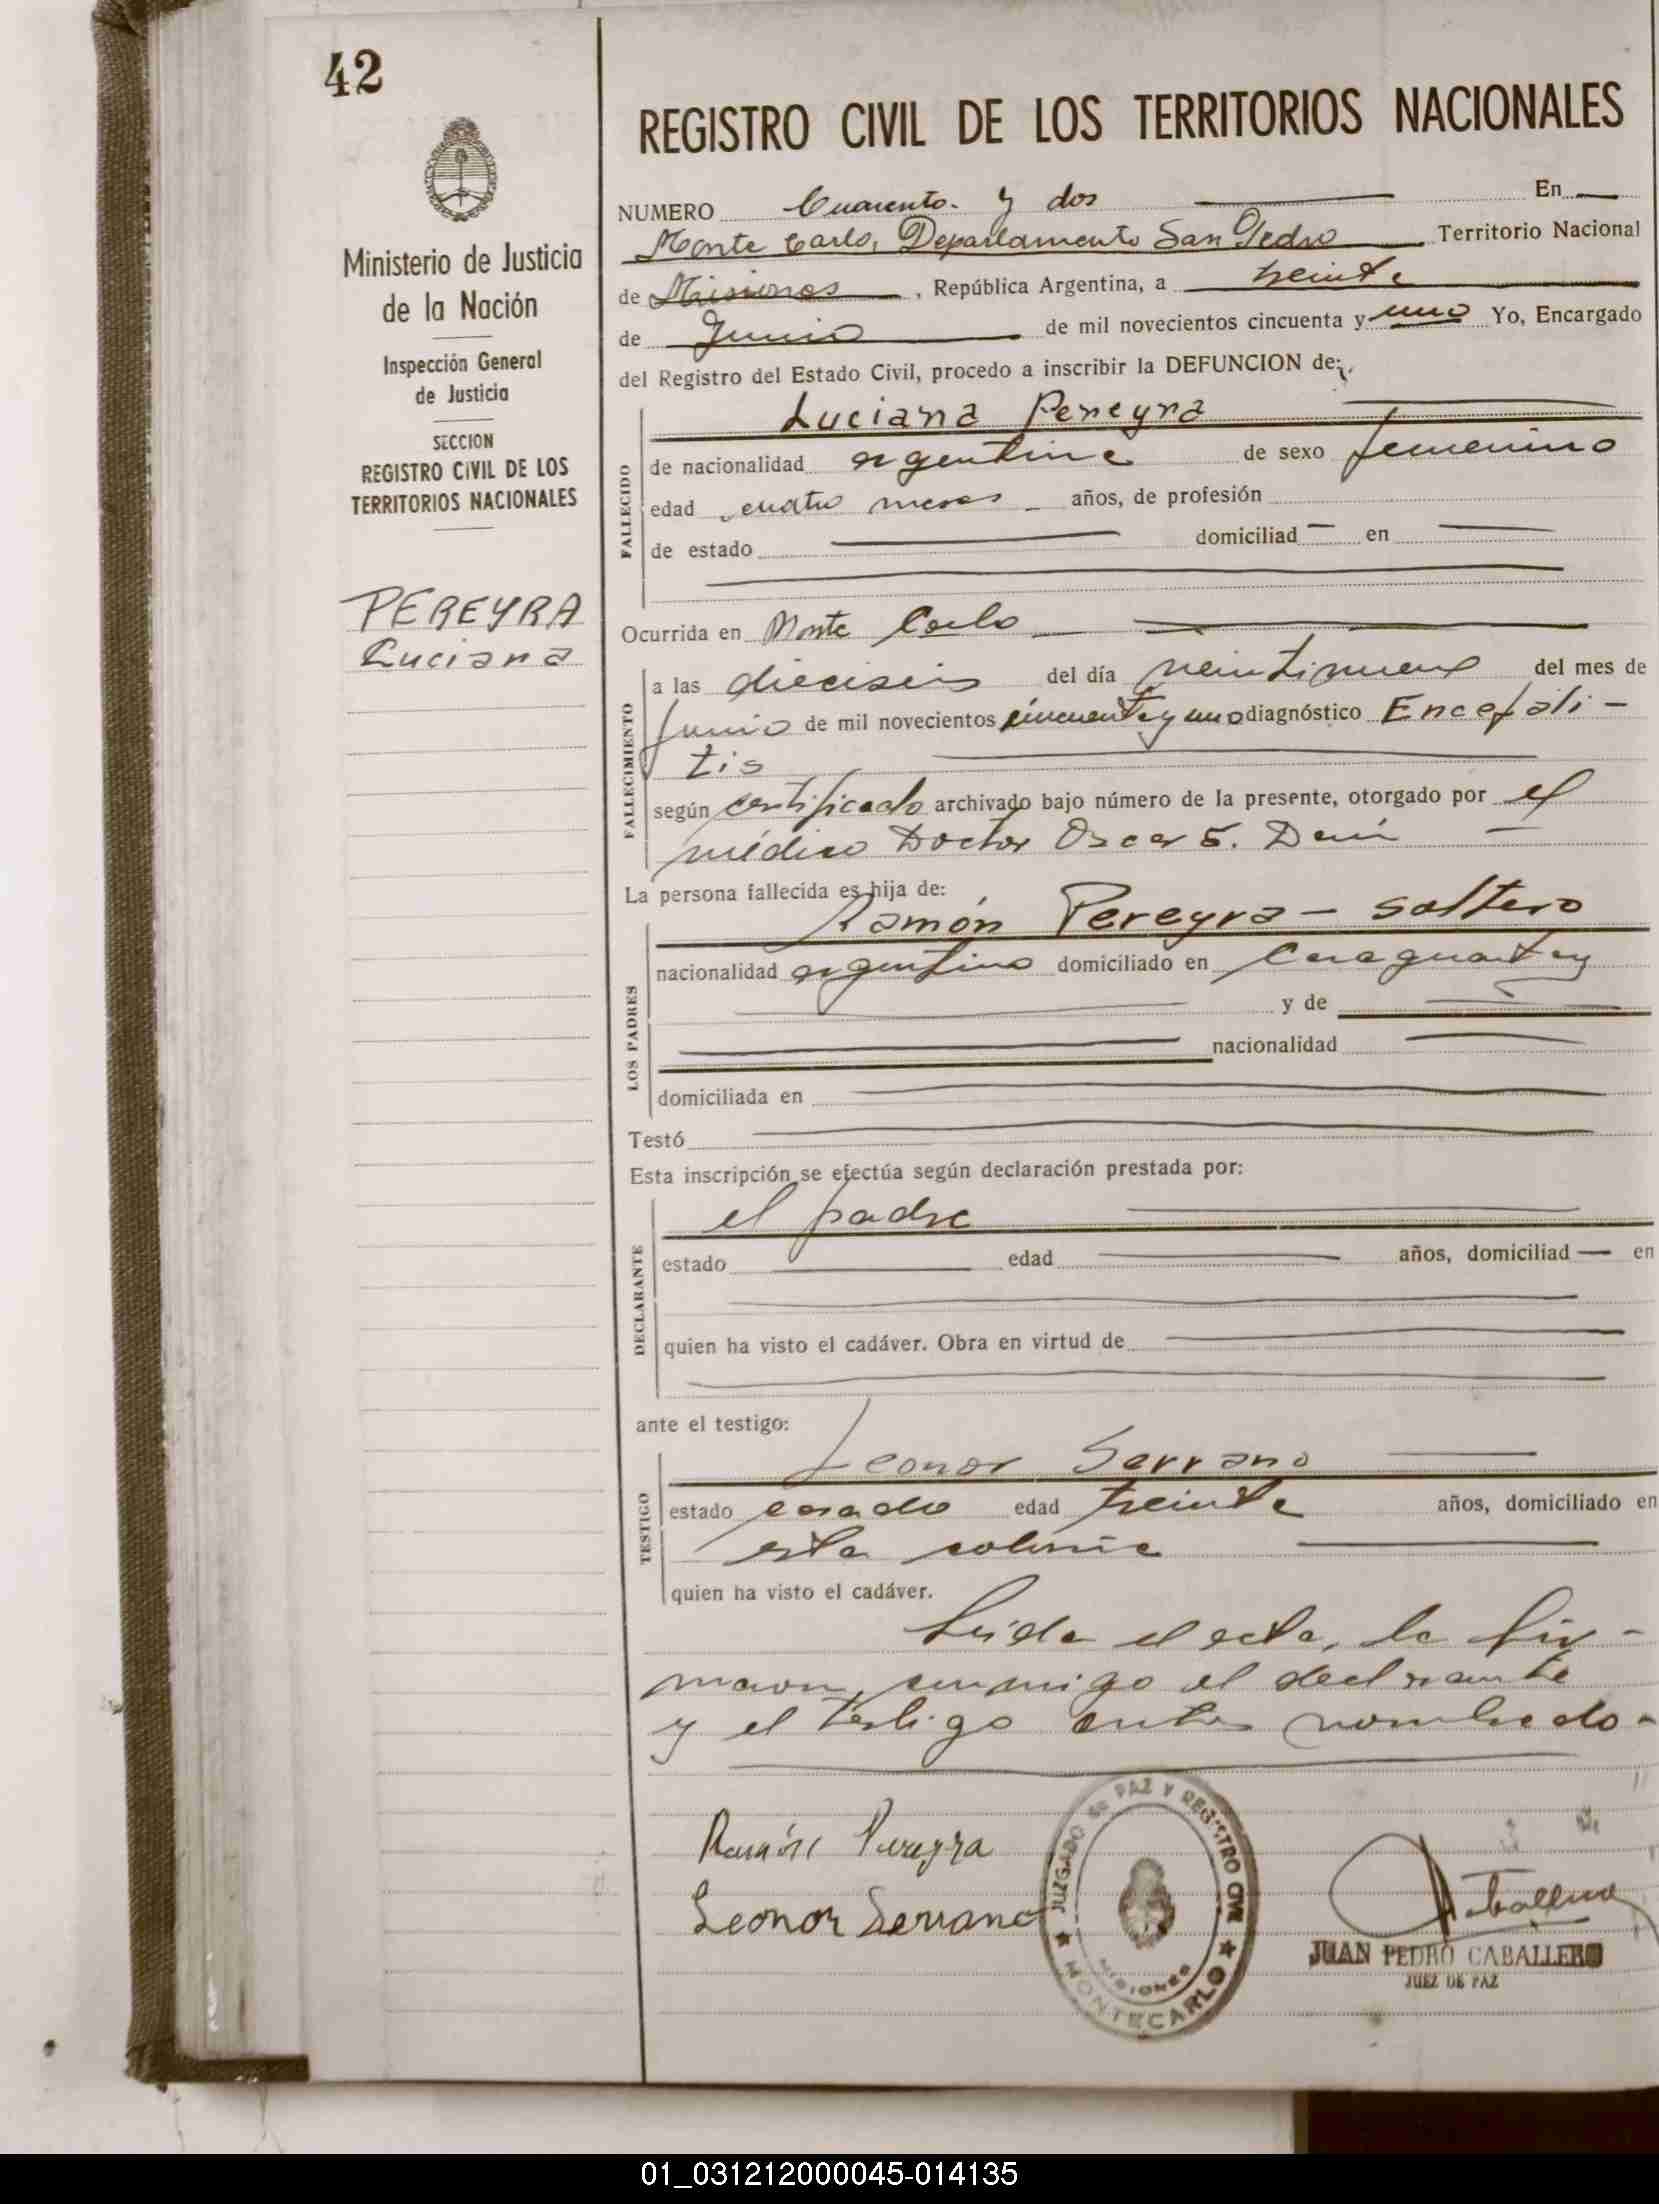 42
REGISTRO CIVIL DE LOS TERRITORIOS NACIONALES
Ministerio de Justicia
de la Nación
Inspección General
de Justicia
SECCION
REGISTRO CIVIL DE LOS
TERRITORIOS NACIONALES
PEREYRA
Luciana
NUMERO Cuarenta y dos En
Monte Carlo, Departamento San Pedro Territorio Nacional
de Misiones, República Argentina, a treinta
de Junio de mil novecientos cincuenta y uno Yo, Encargado
del Registro del Estado Civil, procedo a inscribir la DEFUNCION de:
Luciana Pereyra
FALLECIDO
de nacionalidad argentina de sexo femenino
edad cuatro meses años, de profesión
de estado domiciliad en
Ocurrida en Monte Carlo
FALLECIMIENTO
a las dieciseis del día veintinueve del mes de
Junio de mil novecientos cincuenta y uno diagnóstico Encefali-
tis
según certificado archivado bajo número de la presente, otorgado por el
médico Doctor Oscar
La persona fallecida es hija de:
LOS PADRES
Ramón Pereyra - soltero
nacionalidad argentino domiciliado en Caraguatay
y de
nacionalidad
domiciliada en
Testó
Esta inscripción se efectúa según declaración prestada por:
DECLARANTE
el padre
estado edad años, domiciliad en
quien ha visto el cadáver. Obra en virtud de
ante el testigo:
TESTIGO
Leonor Serrano
estado casado edad treinta años, domiciliado en
esta colonia
quien ha visto el cadáver.
Leida el acta, la fir-
maron conmigo el declarante
y el testigo antes nombrado-
Ramón Pereyra
Leonor Serrano
JUZGADO DE PAZ Y REGISTRO CIVIL
MISIONES
MONTECARLO
Caballero
JUAN PEDRO CABALLERO
JUEZ DE PAZ
01_031212000045-014135